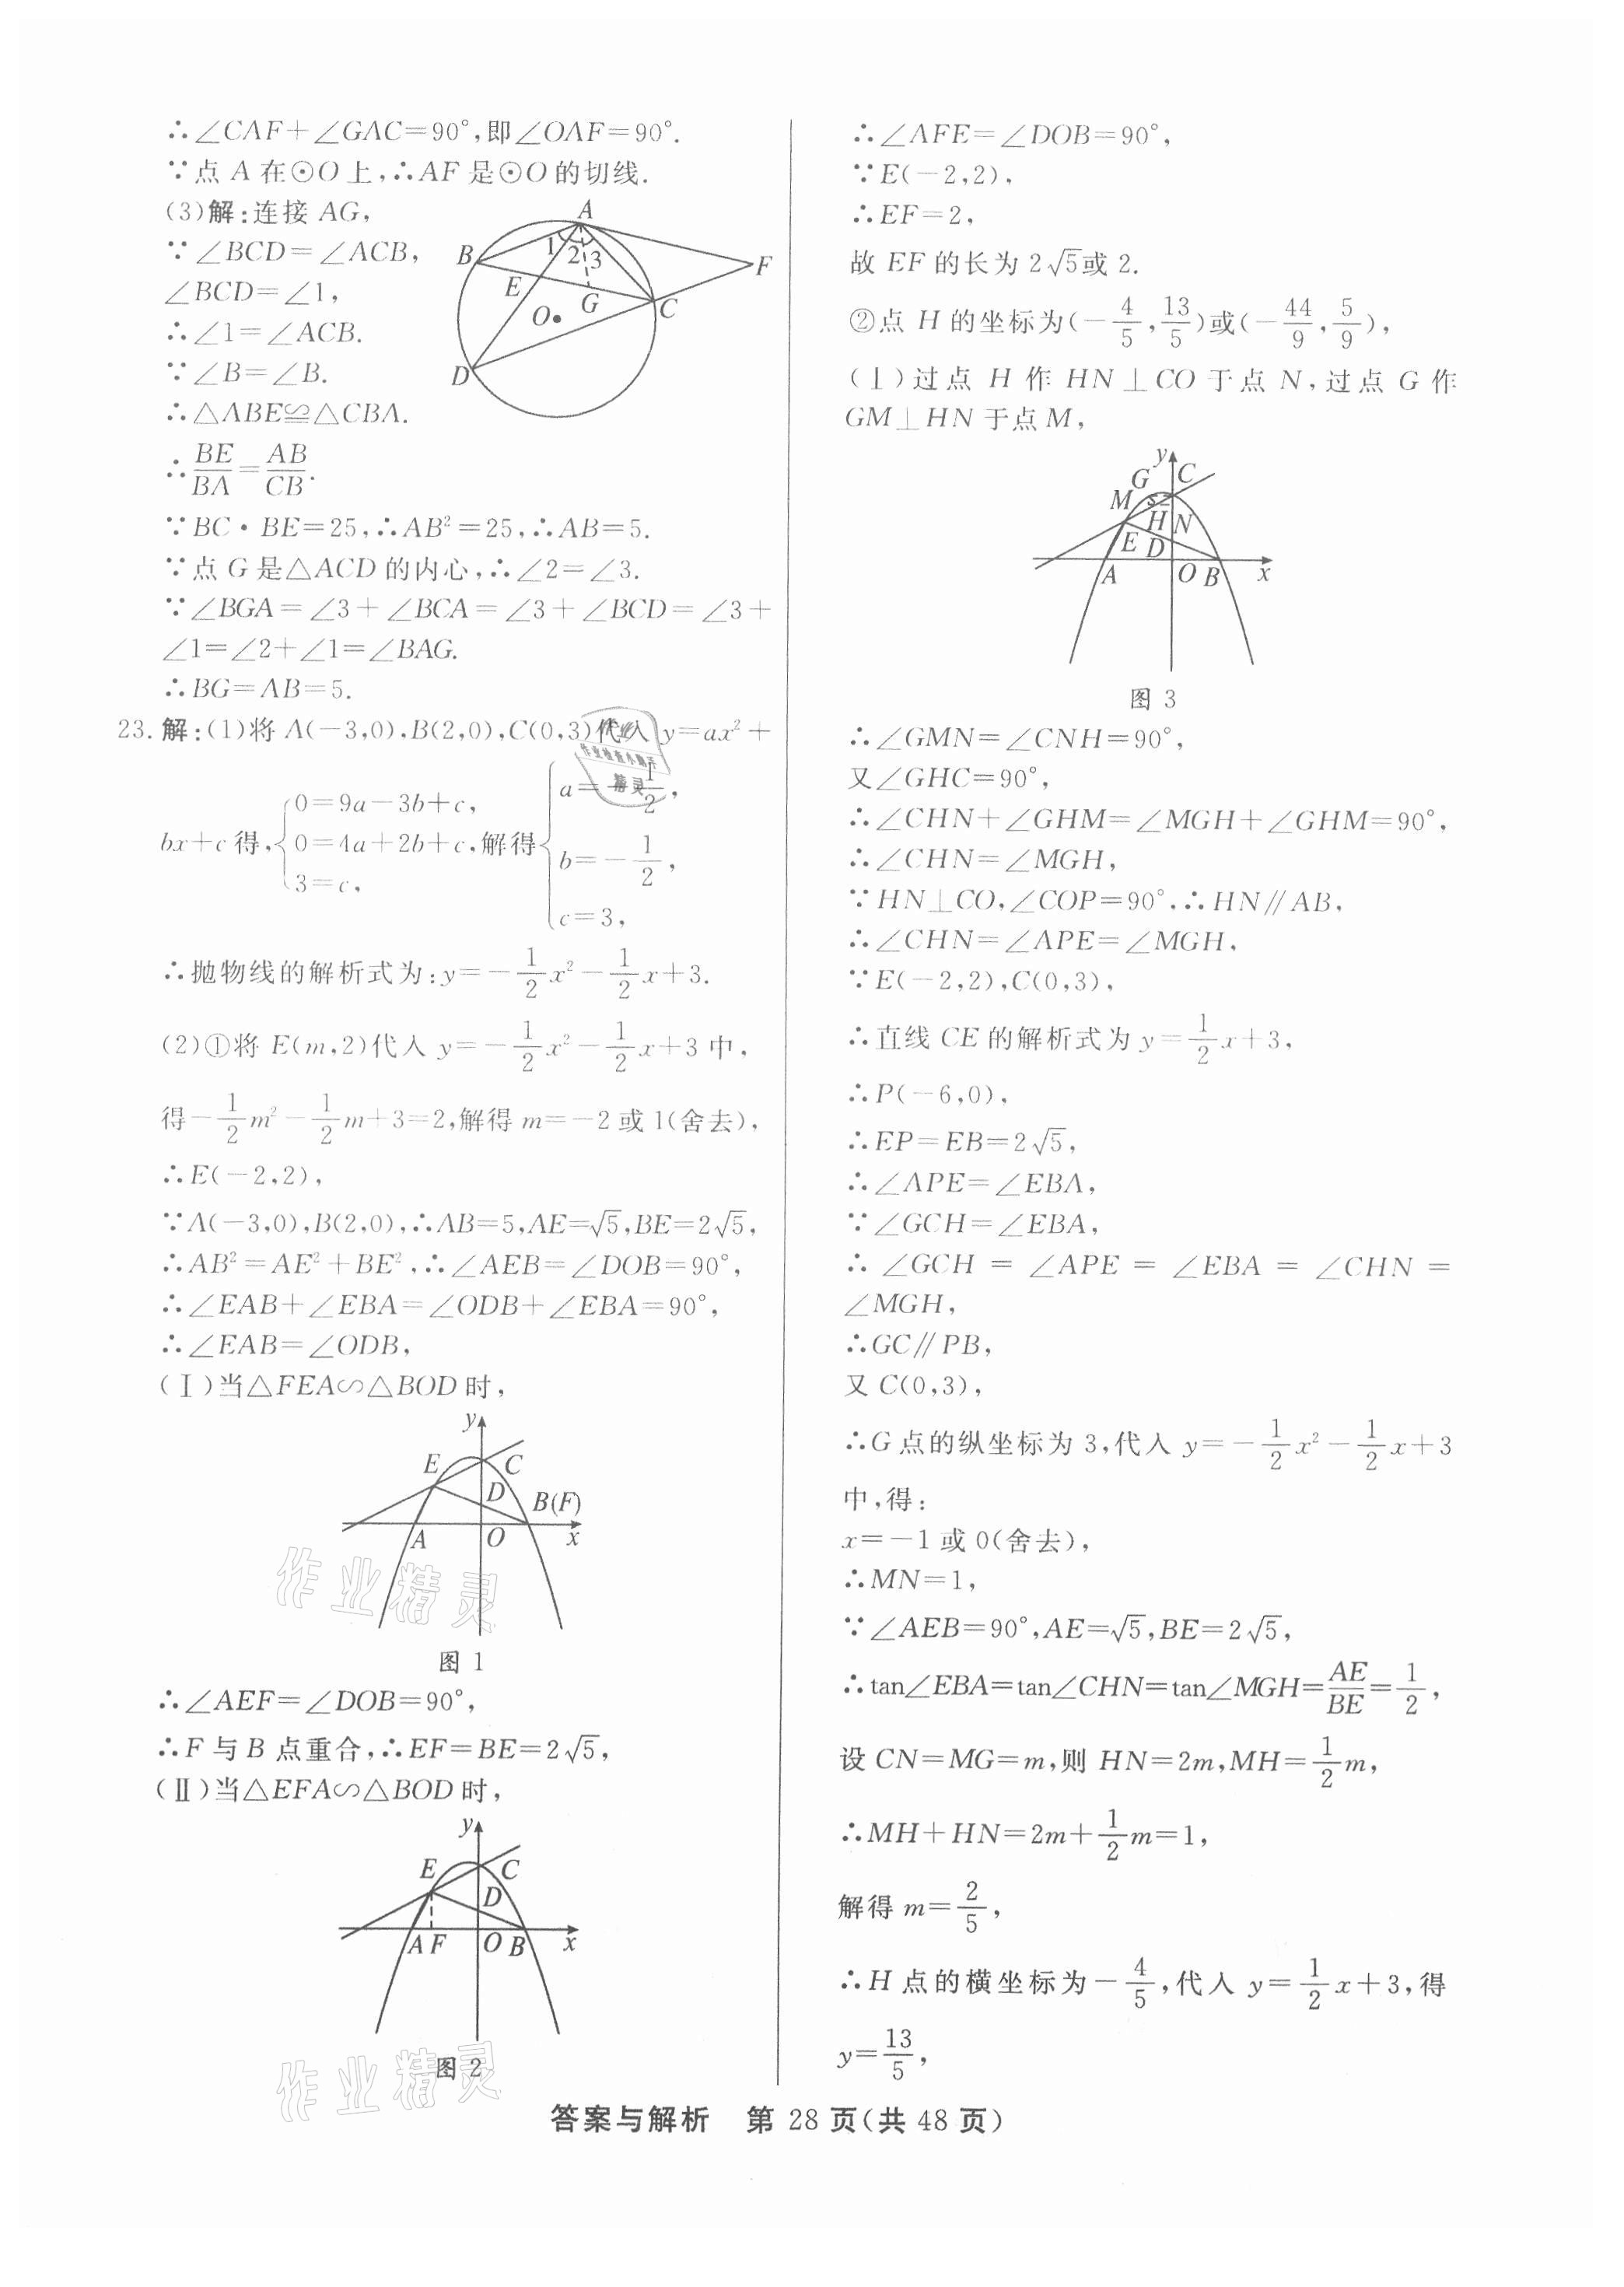 ∴∠CAF+∠GAC=90°,即∠OAF=90°.
∵点 A 在⊙O上,∴AF 是⊙O的切线.
(3)解:连接 AG,
∵∠BCD=∠ACB,
∠BCD=∠1,
∴∠1=∠ACB.
∵∠B=∠B.
∴△ABE≌△CBA.
∴BE/BA=AB/CB.
A
B
1
2
3
F
E
G
C
O
D
∵BC·BE=25,∴AB²=25,∴AB=5.
∵点 G 是△ACD 的内心,∴∠2=∠3.
∵∠BGA=∠3+∠BCA=∠3+∠BCD=∠3+
∠1=∠2+∠1=∠BAG.
∴BG=AB=5.
23.解:(1)将 A(-3,0),B(2,0),C(0,3)代入 y=ax²+
bx+c 得,{0=9a-3b+c, 0=4a+2b+c, 3=c, 解得{a=-1/2, b=-1/2, c=3,
作业检查小助手
精灵
∴抛物线的解析式为:y=-1/2x²-1/2x+3.
(2)①将 E(m,2)代入 y=-1/2x²-1/2x+3 中,
得-1/2m²-1/2m+3=2,解得 m=-2 或 1(舍去),
∴E(-2,2),
∵A(-3,0),B(2,0),∴AB=5,AE=√5,BE=2√5,
∴AB²=AE²+BE²,∴∠AEB=∠DOB=90°,
∴∠EAB+∠EBA=∠ODB+∠EBA=90°,
∴∠EAB=∠ODB,
(Ⅰ)当△FEA∽△BOD 时,
y
E
C
D
B(F)
A
O
x
图 1
作业精灵
∴∠AEF=∠DOB=90°,
∴F 与 B 点重合,∴EF=BE=2√5,
(Ⅱ)当△EFA∽△BOD 时,
y
E
C
D
A
F
O
B
x
图 2
作业精灵
∴∠AFE=∠DOB=90°,
∵E(-2,2),
∴EF=2,
故 EF 的长为 2√5或 2.
②点 H 的坐标为(-4/5,13/5)或(-44/9,5/9),
(Ⅰ)过点 H 作 HN⊥CO 于点 N,过点 G 作
GM⊥HN 于点 M,
y
G
C
M
H
N
E
D
A
O
B
x
图 3
∴∠GMN=∠CNH=90°,
又∠GHC=90°,
∴∠CHN+∠GHM=∠MGH+∠GHM=90°,
∴∠CHN=∠MGH,
∵HN⊥CO,∠COP=90°,∴HN∥AB,
∴∠CHN=∠APE=∠MGH,
∵E(-2,2),C(0,3),
∴直线 CE 的解析式为 y=1/2x+3,
∴P(-6,0),
∴EP=EB=2√5,
∴∠APE=∠EBA,
∵∠GCH=∠EBA,
∴∠GCH=∠APE=∠EBA=∠CHN=
∠MGH,
∴GC∥PB,
又 C(0,3),
∴G 点的纵坐标为 3,代入 y=-1/2x²-1/2x+3
中,得:
x=-1 或 0(舍去),
∴MN=1,
∵∠AEB=90°,AE=√5,BE=2√5,
∴tan∠EBA=tan∠CHN=tan∠MGH=AE/BE=1/2,
设 CN=MG=m,则 HN=2m,MH=1/2m,
∴MH+HN=2m+1/2m=1,
解得 m=2/5,
∴H 点的横坐标为-4/5,代入 y=1/2x+3,得
y=13/5,
答案与解析 第 28 页(共 48 页)